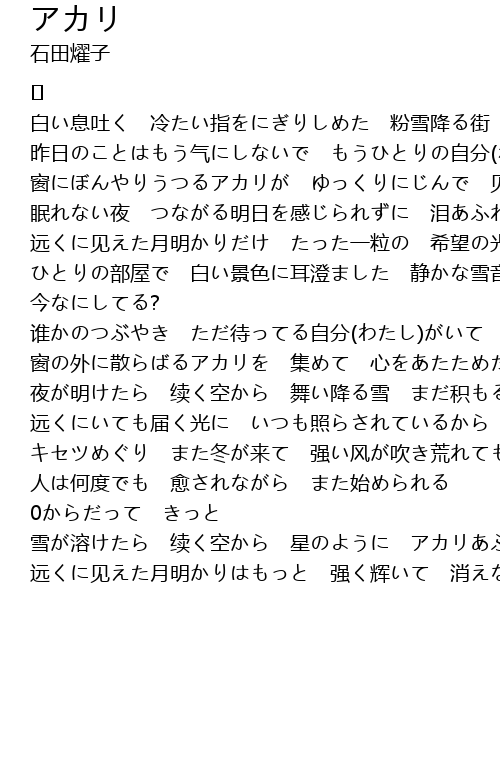 アカリ
石田燿子
[]
白い息吐く　冷たい指をにぎりしめた　粉雪降る街
昨日のことはもう气にしないで　もうひとりの自分(
窗にぼんやりうつるアカリが　ゆっくりにじんで
眠れない夜　つながる明日を感じられずに　泪あふ
远くに见えた月明かりだけ　たった一粒の　希望の光
ひとりの部屋で　白い景色に耳澄ました　静かな雪音
今なにしてる?
谁かのつぶやき　ただ待ってる自分(わたし)がいて
窗の外に散らばるアカリを　集めて　心をあたためた
夜が明けたら　续く空から　舞い降る雪　まだ积もる
远くにいても届く光に　いつも照らされているから
キセツめぐり　また冬が来て　强い风が吹き荒れても
人は何度でも　愈されながら　また始められる
0からだって　きっと
雪が溶けたら　续く空から　星のように　アカリあふ
远くに见えた月明かりはもっと　强く辉いて　消えな